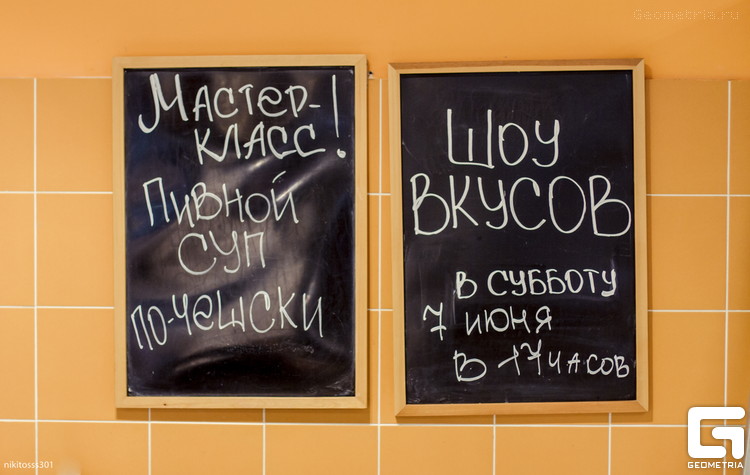 Geometria.ru
Мастер-
класс!
Пивной
суп
по-чешски
Шоу
вкусов
в субботу
7 июня
в 17 часов
nikitosss301
GEOMETRIA